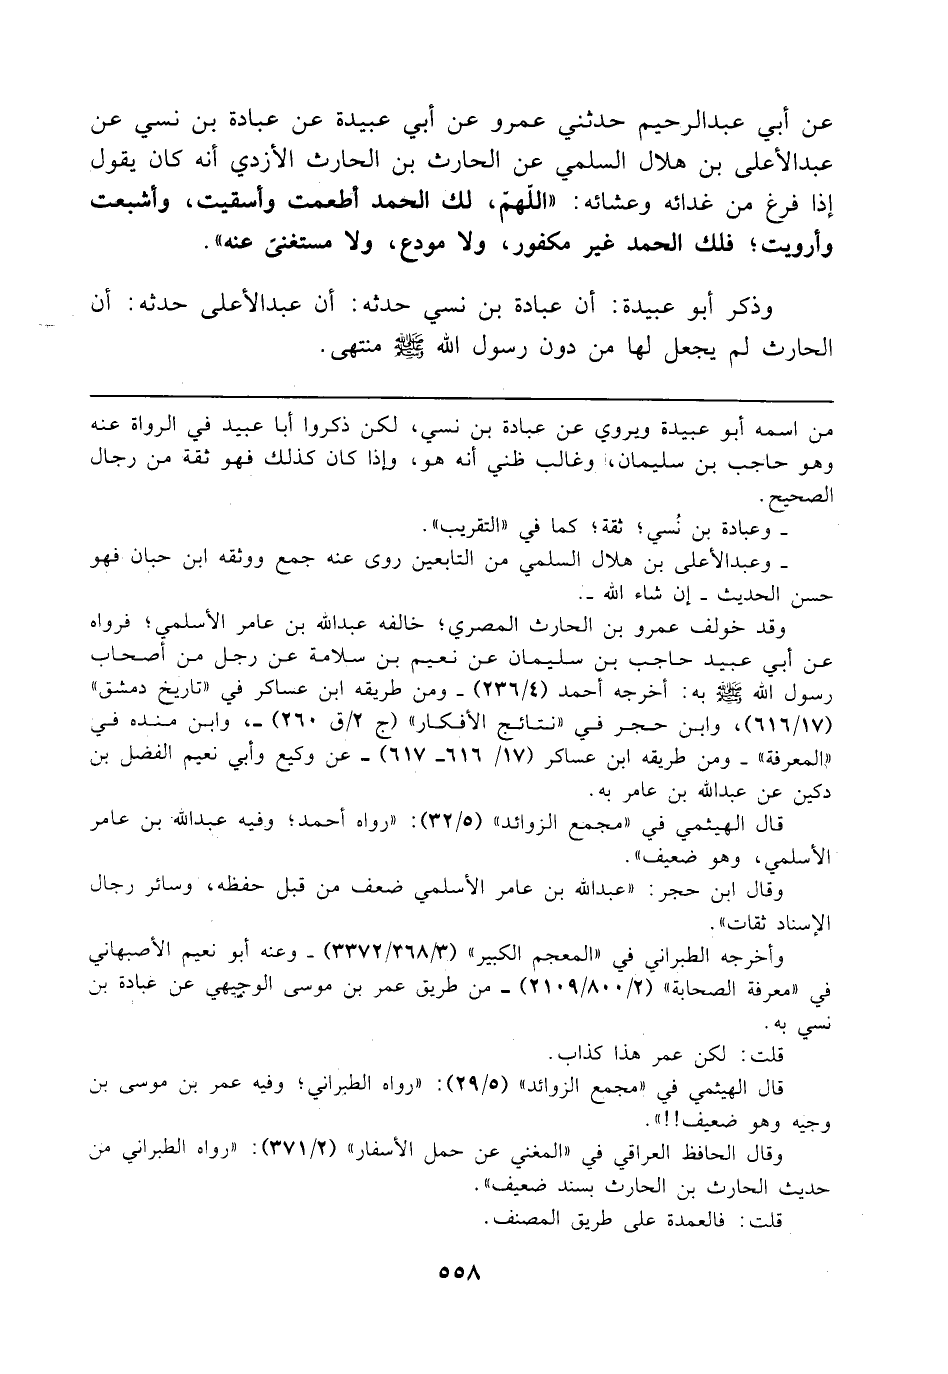 عن أبي عبدالرحيم حدثني عمرو عن أبي عبيدة عن عبادة بن نسي عن
عبدالأعلى بن هلال السلمي عن الحارث بن الحارث الأزدي أنه كان يقول
إذا فرغ من غدائه وعشائه: «اللّهمّ، لك الحمد أطعمت وأسقيت، وأشبعت
وأرويت؛ فلك الحمد غير مكفور، ولا مودع، ولا مستغنىً عنه».
وذكر أبو عبيدة: أن عبادة بن نسي حدثه: أن عبدالأعلى حدثه: أن
الحارث لم يجعل لها من دون رسول الله ﷺ منتهى.
من اسمه أبو عبيدة ويروي عن عبادة بن نسي، لكن ذكروا أبا عبيد في الرواة عنه
وهو حاجب بن سليمان، وغالب ظني أنه هو، وإذا كان كذلك فهو ثقة من رجال
الصحيح.
ـ وعبادة بن نُسي؛ ثقة؛ كما في «التقريب».
ـ وعبدالأعلى بن هلال السلمي من التابعين روى عنه جمع ووثقه ابن حبان فهو
حسن الحديث ـ إن شاء الله ـ.
وقد خولف عمرو بن الحارث المصري؛ خالفه عبدالله بن عامر الأسلمي؛ فرواه
عن أبي عبيد حاجب بن سليمان عن نعيم بن سلامة عن رجل من أصحاب
رسول الله ﷺ به: أخرجه أحمد (٢٣٦/٤) ـ ومن طريقه ابن عساكر في «تاريخ دمشق»
(٦١٦/١٧)، وابن حجر في «نتائج الأفكار» (ج ٢/ق ٢٦٠) ـ، وابن منده في
«المعرفة» ـ ومن طريقه ابن عساكر (١٧/ ٦١٦ـ ٦١٧) ـ عن وكيع وأبي نعيم الفضل بن
دكين عن عبدالله بن عامر به.
قال الهيثمي في «مجمع الزوائد» (٣٢/٥): «رواه أحمد؛ وفيه عبدالله بن عامر
الأسلمي، وهو ضعيف».
وقال ابن حجر: «عبدالله بن عامر الأسلمي ضعف من قبل حفظه، وسائر رجال
الإسناد ثقات».
وأخرجه الطبراني في «المعجم الكبير» (٣٣٧٢/٢٦٨/٣) ـ وعنه أبو نعيم الأصبهاني
في «معرفة الصحابة» (٢١٠٩/٨٠٠/٢) ـ من طريق عمر بن موسى الوجيهي عن عبادة بن
نسي به.
قلت: لكن عمر هذا كذاب.
قال الهيثمي في «مجمع الزوائد» (٢٩/٥): «رواه الطبراني؛ وفيه عمر بن موسى بن
وجيه وهو ضعيف!!».
وقال الحافظ العراقي في «المغني عن حمل الأسفار» (٣٧١/٢): «رواه الطبراني من
حديث الحارث بن الحارث بسند ضعيف».
قلت: فالعمدة على طريق المصنف.
٥٥٨